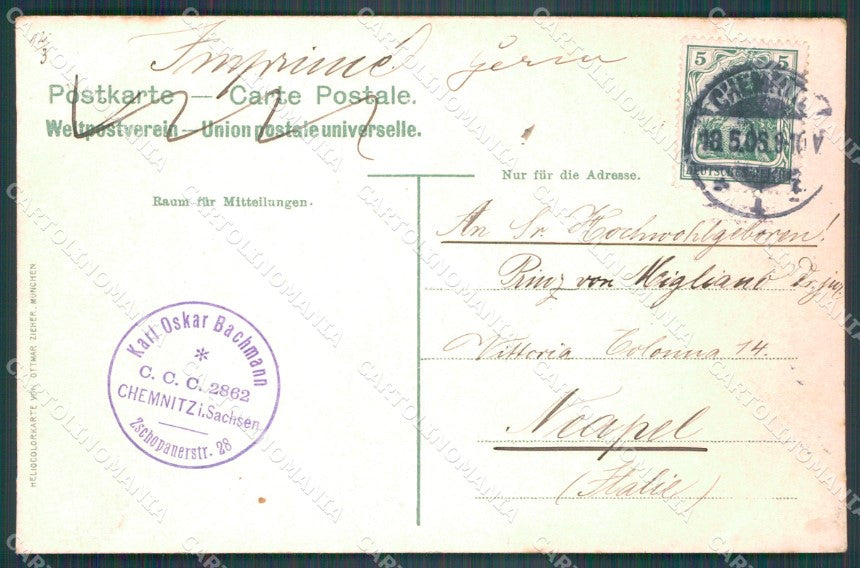 Imprimé
Postkarte — Carte Postale.
Weltpostverein — Union postale universelle.
5 5
CHEMNITZ
18.5.06.9-10 V
1
DEUTSCHES REICH
Nur für die Adresse.
Raum für Mitteilungen.
An Sr. Hochwohlgeboren!
Prinz von Migliano
Vittoria Colonna 14.
Neapel
(Italie)
Karl Oskar Bachmann
*
C. C. C. 2862
CHEMNITZ i. Sachsen
Zschopauerstr. 28
HELIOCOLORKARTE VON OTTMAR ZIEHER, MÜNCHEN
CARTOLINOMANIA